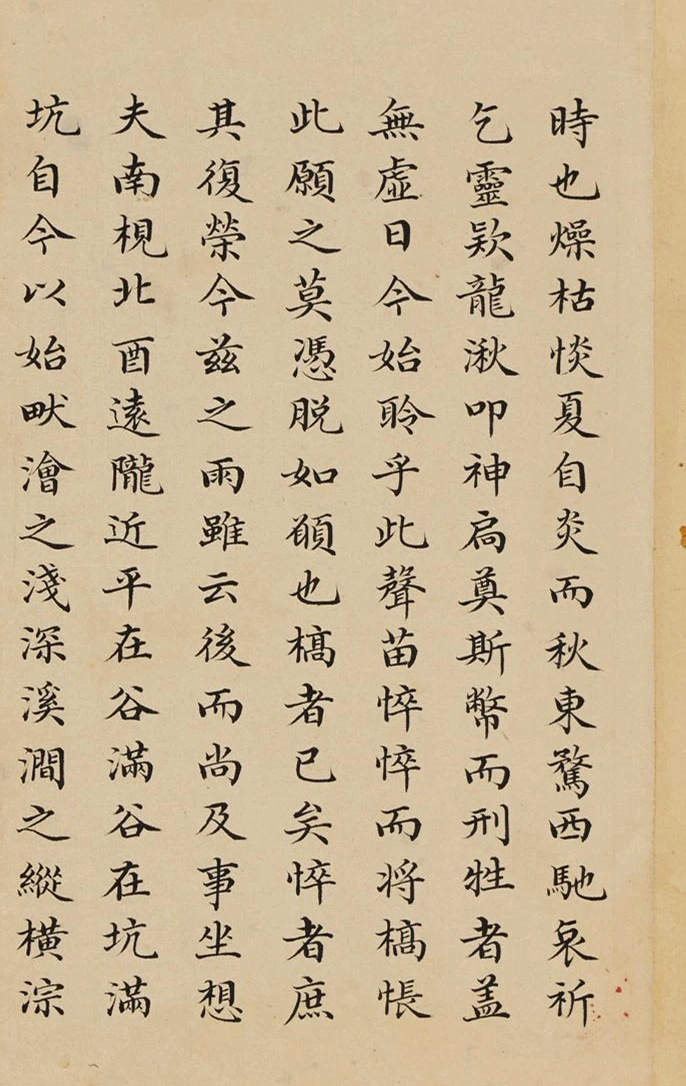 時也燥枯惔夏自炎而秋東騖西馳哀祈
乞靈欵龍湫叩神扃奠斯幣而刑牲者盖
無虛日今始聆乎此聲苗悴悴而將槁悵
此願之莫憑脱如頠也槁者已矣悴者庶
其復榮今兹之雨雖云後而尚及事坐想
夫南梘北酉遠隴近平在谷滿谷在坑滿
坑自今以始畎澮之淺深溪澗之縱橫淙